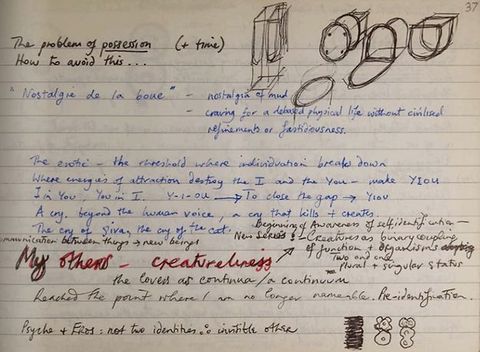 37
The problem of possession (+ time)
How to avoid this...
"Nostalgie de la boue" - nostalgia of mud
- craving for a debased physical life without civilised
refinements or fastidiousness.
The erotic - the threshold where individuation breaks down
Where energies of attraction destroy the I and the You - make YIOU
I in You, You in I. Y-I-OU → To close the gap → YIOU
A cry beyond the human voice, a cry that kills + creates.
The cry of the cat.
Beginning of Awareness of self identification -
communication between things → new beings
New Series? - Creatures as binary coupling
of function + organism's
Two and one
plural + singular status
My others - creatureliness
the loved as continua / a continuum
Reached the point where I am no longer nameable. Pre-identification.
Psyche + Eros: not two identities invisible other